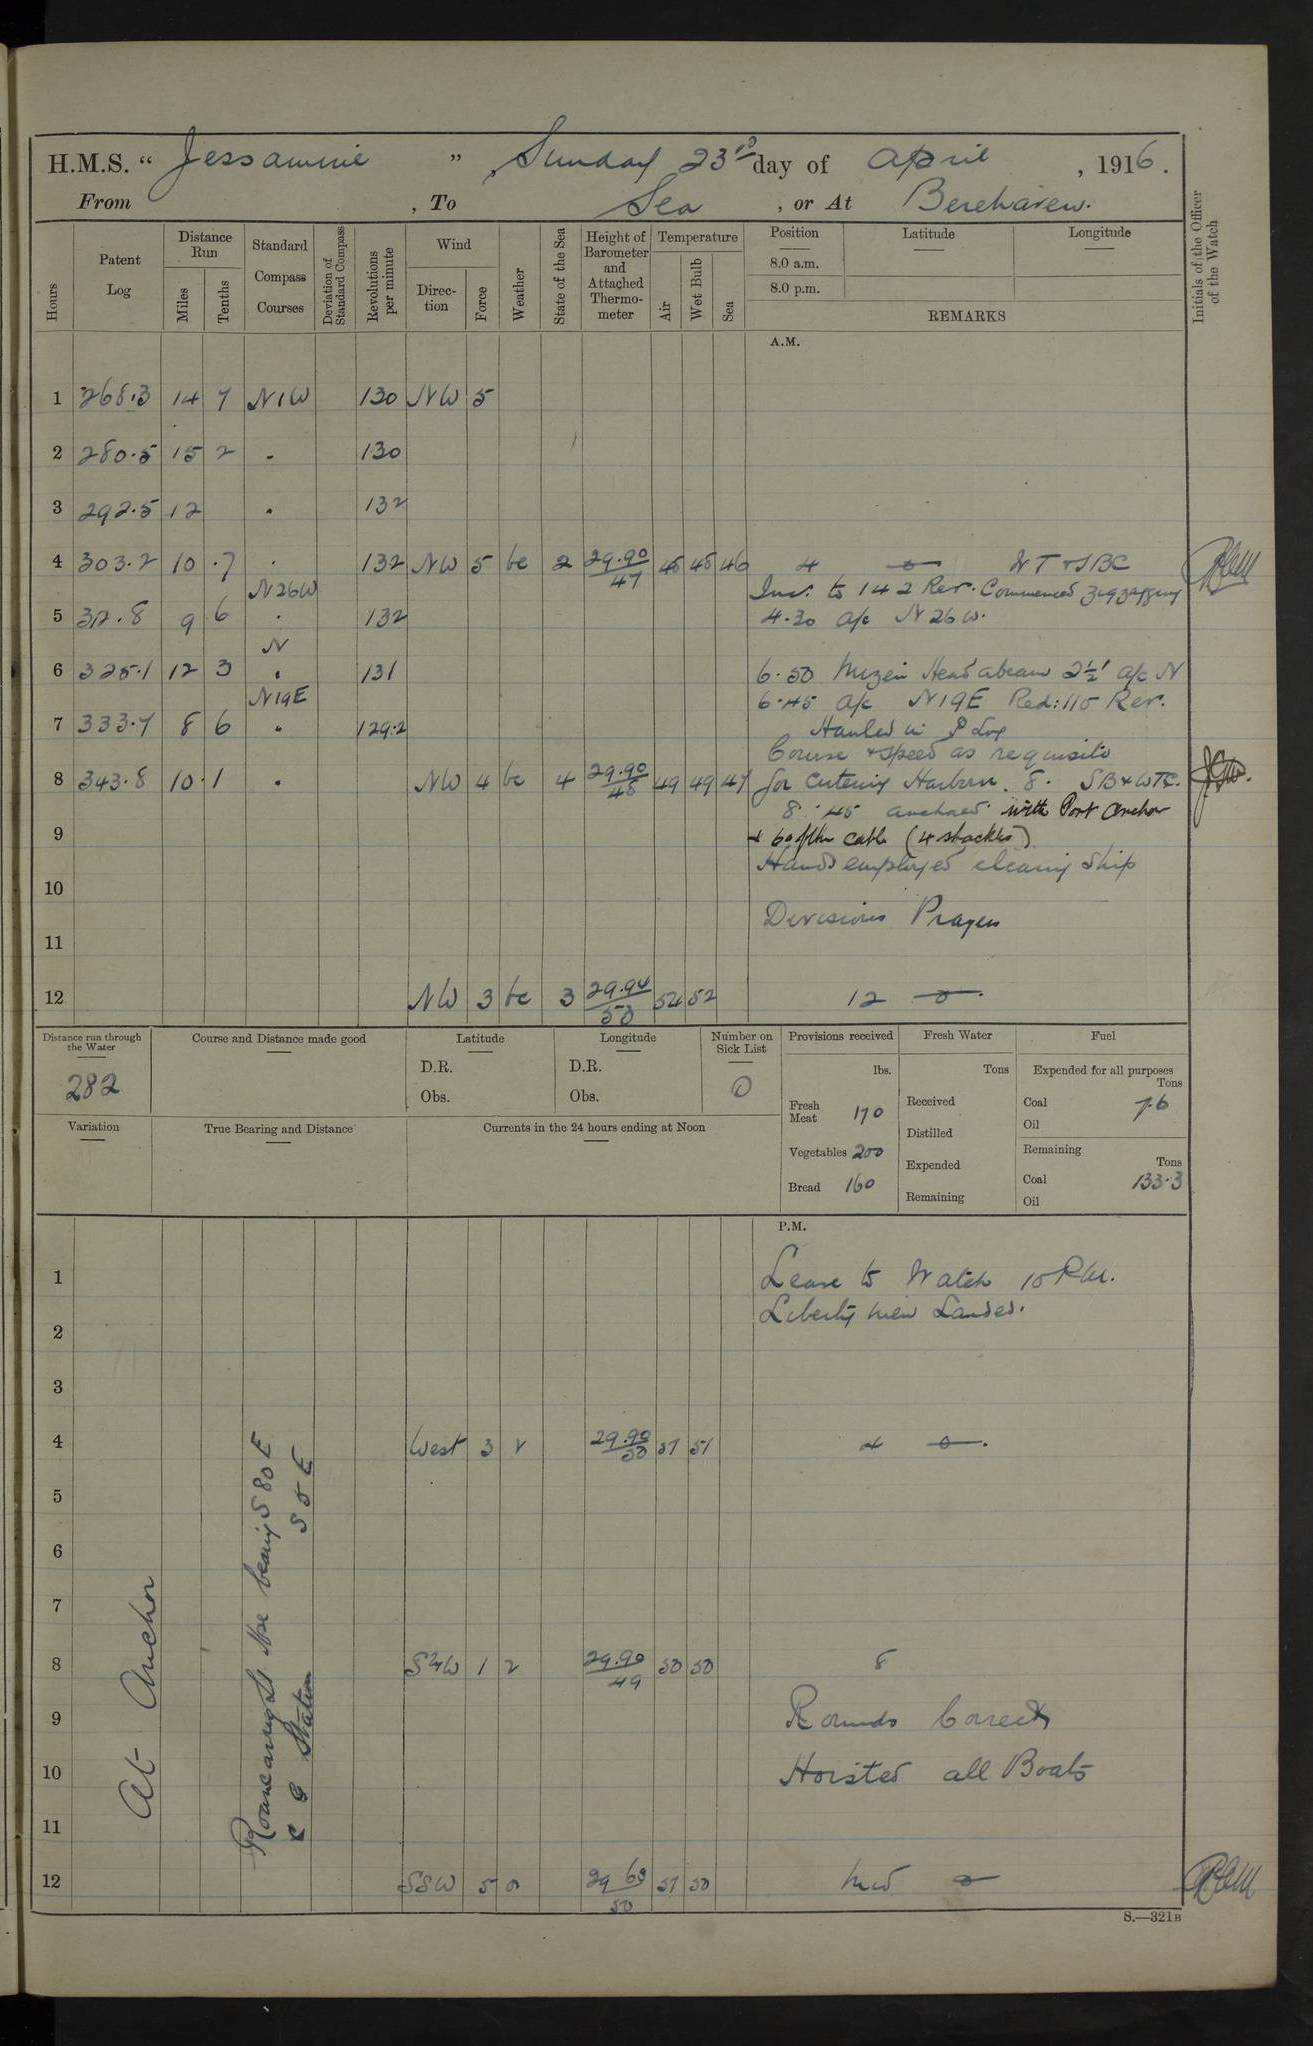 H.M.S. " Jessamine ", Sunday 23rd day of April, 1916.
From , To Sea , or At Berehaven.
Hours
Patent Log
Distance Run
Miles
Tenths
Standard Compass Courses
Deviation of Standard Compass
Revolutions per minute
Wind
Direction
Force
Weather
State of the Sea
Height of Barometer and Attached Thermometer
Temperature
Air
Wet Bulb
Sea
Position
8.0 a.m.
8.0 p.m.
Latitude
Longitude
REMARKS
Initials of the Officer of the Watch
A.M.
1 268.3 14 7 N1W 130 NW 5
2 280.5 15 2 " 130
3 292.5 12 " 132
4 303.2 10 .7 " 132 NW 5 bc 2 29.90/47 45 45 46 4 WT + SBC
N26W Inc. to 142 Rev. Commenced zigzagging
5 312.8 9 6 " 132 4.30 a/c N26W.
N
6 325.1 12 3 " 131 6.50 Mizen Head abeam 2½' a/c N
N19E 6.45 a/c N19E Red: 110 Rev.
7 333.7 8 6 " 129.2 Hauled in P Log
Course + speed as requisite
8 343.8 10 .1 " NW 4 bc 4 29.90/48 49 49 47 for entering Harbour. 8. SB + WTC.
8.45 anchored with Port Anchor
9 + 60 fthm cable (4 shackles)
Hands employed cleaning Ship
10
Devisions Prayers
11
12 NW 3 bc 3 29.94/50 52 52 12
Distance run through the Water
282
Course and Distance made good
Latitude
D.R.
Obs.
Longitude
D.R.
Obs.
Number on Sick List
0
Provisions received
lbs.
Fresh Meat 170
Vegetables 200
Bread 160
Fresh Water
Tons
Received
Distilled
Expended
Remaining
Fuel
Expended for all purposes
Tons
Coal 7.6
Oil
Remaining
Tons
Coal 133.3
Oil
Variation
True Bearing and Distance
Currents in the 24 hours ending at Noon
P.M.
1 Leave to Watch 10 PM.
Liberty men Landed.
2
3
4 West 3 29.90/50 51 51 4
5
6
7
8 SW 1 29.90/49 50 50 8
9 Rounds Correct
10 Hoisted all Boats
11
12 SSW 5 o 50 51 50 Mid
At Anchor
Roancarrig Lt Hse bearing S80E
C G Station S5E
S.—321B